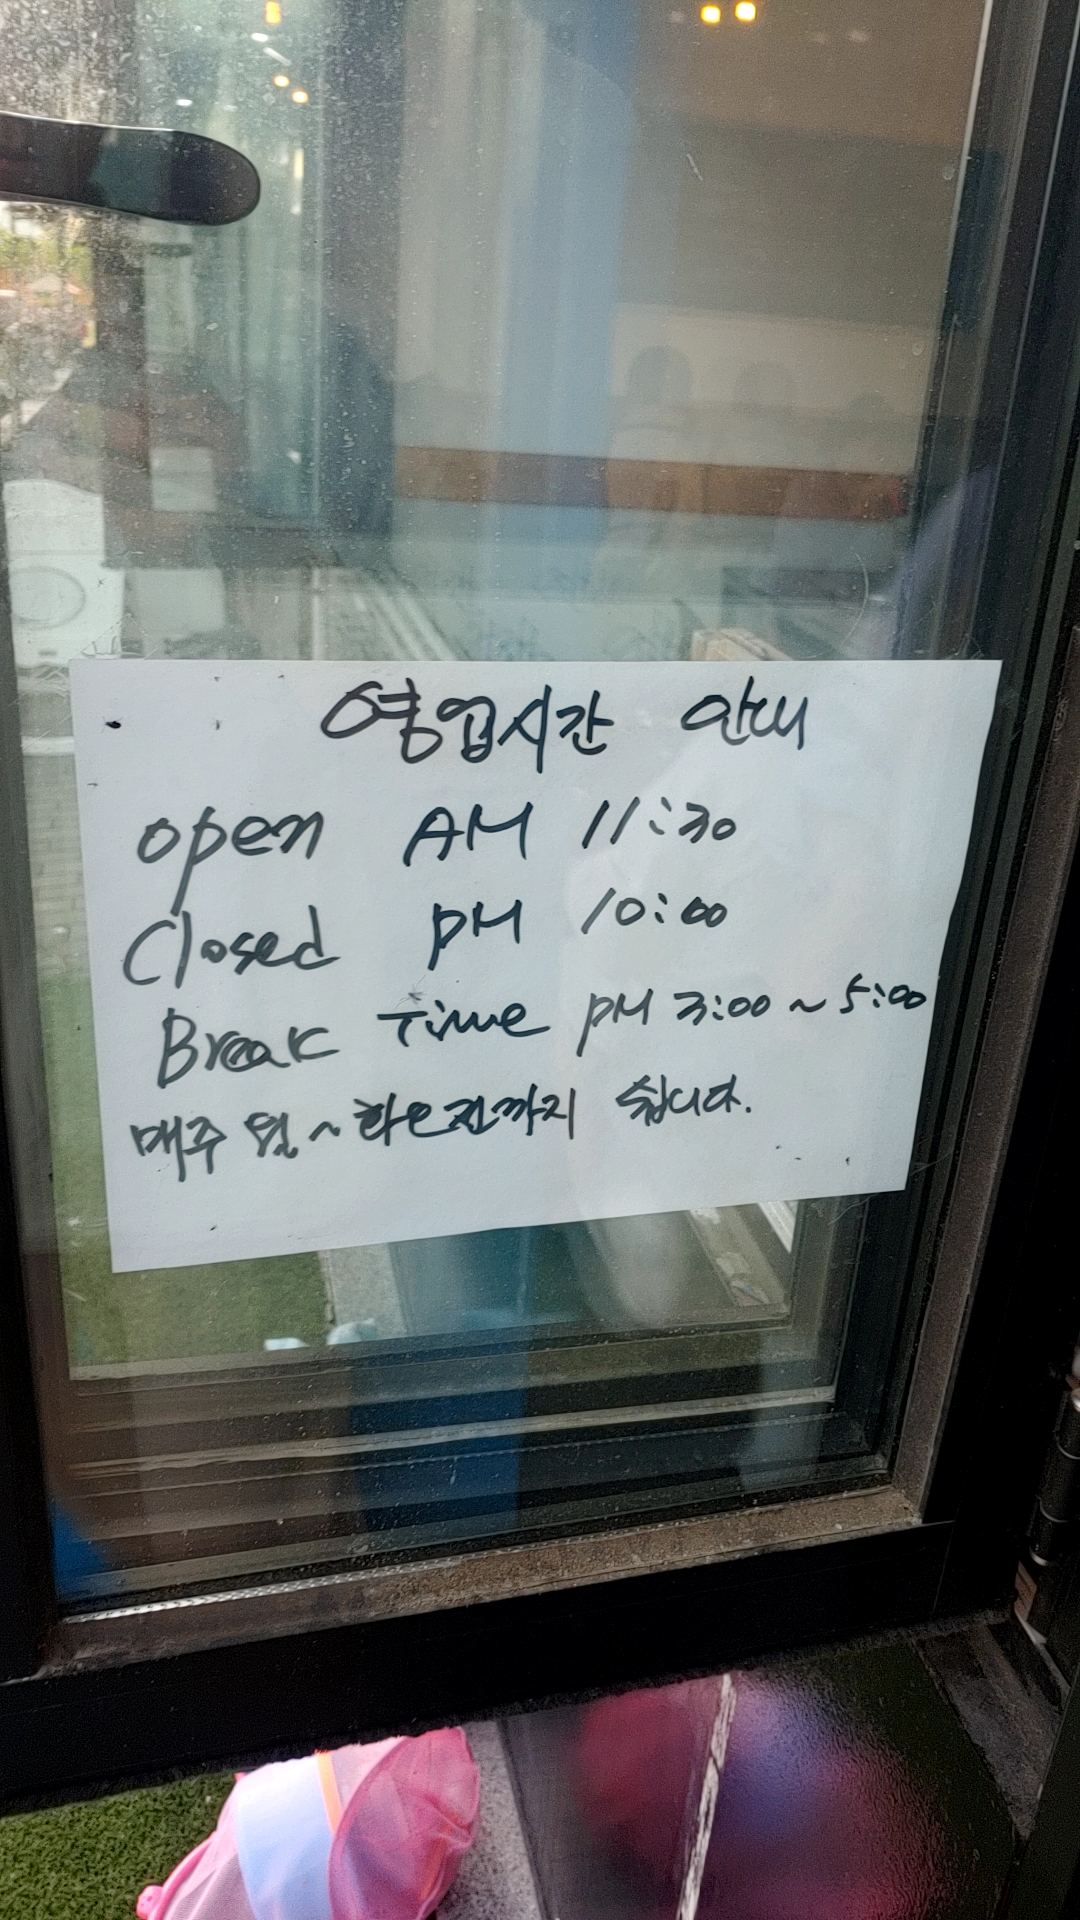 영업시간 안내
open AM 11:30
Closed PM 10:00
Break Time PM 3:00 ~ 5:00
매주 월 ~ 화요일까지 쉽니다.